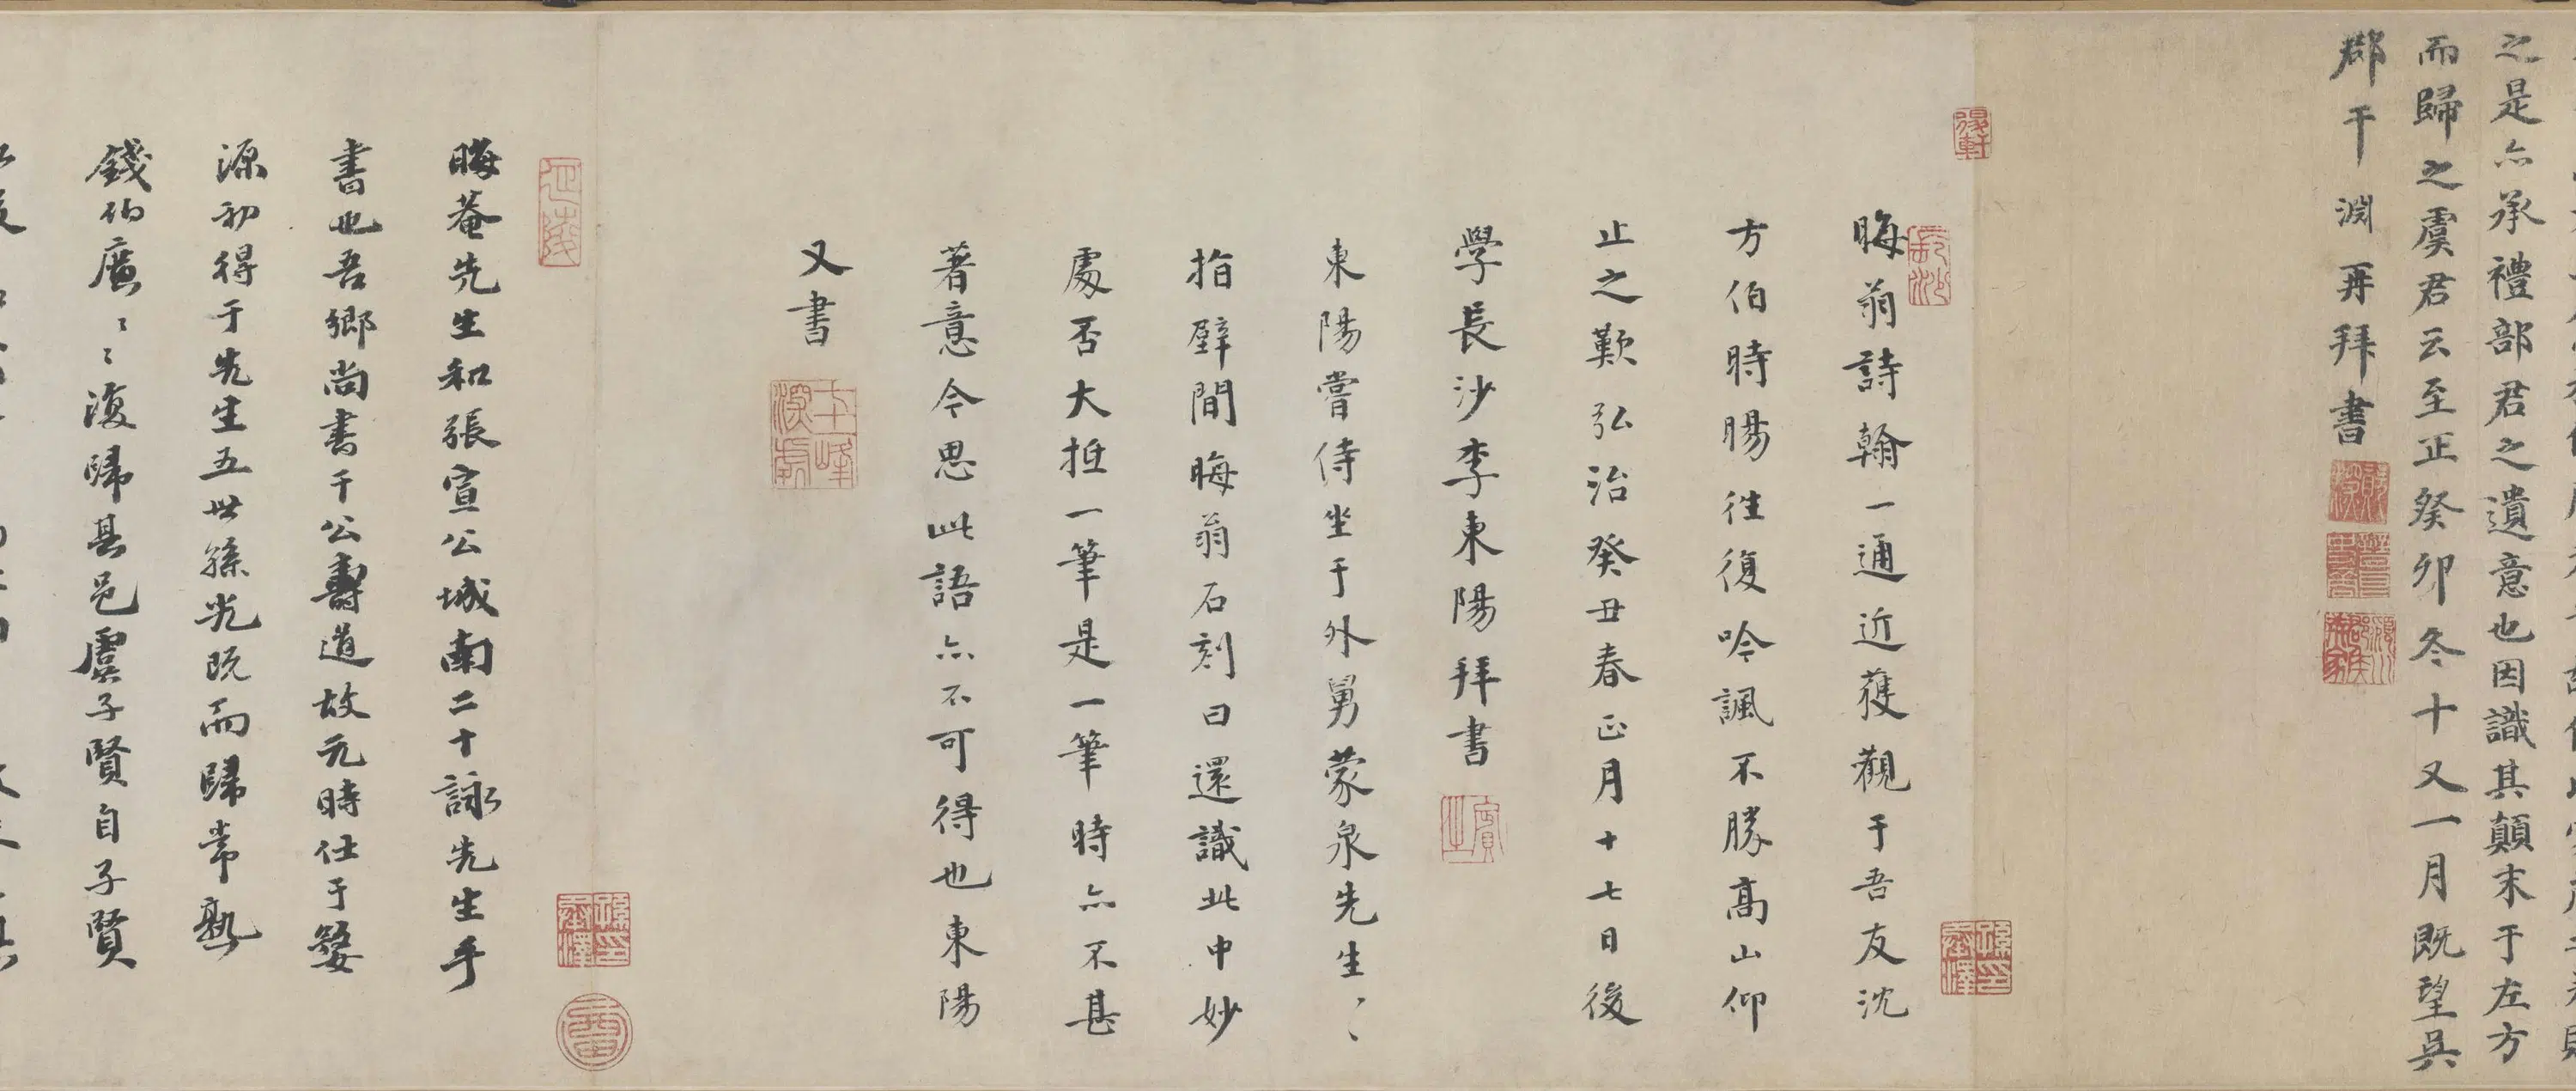 之是亦承禮部君之遺意也因識其顛末于左方
而歸之虞君云至正癸卯冬十又一月既望吳
郡干淵再拜書
晦翁詩翰一通近獲觀于吾友沈
方伯時暘往復吟諷不勝高山仰
止之歎弘治癸丑春正月十七日後
學長沙李東陽拜書
東陽嘗侍坐于外舅蒙泉先生〻〻
指壁間晦翁石刻曰還識此中妙
處否大抵一筆是一筆時亦不甚
著意今思此語亦不可得也東陽
又書
晦菴先生和張宣公城南二十詠先生手
書也吾鄉尚書干公壽道故元時仕于婺
源初得于先生五世孫光既而歸常熟
錢伯廣〻〻復歸其邑虞子賢自子賢